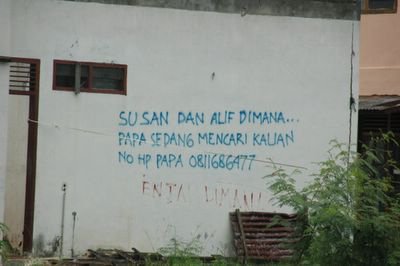 SUSAN DAN ALIF DIMANA...
PAPA SEDANG MENCARI KALIAN
NO HP PAPA 0811686477